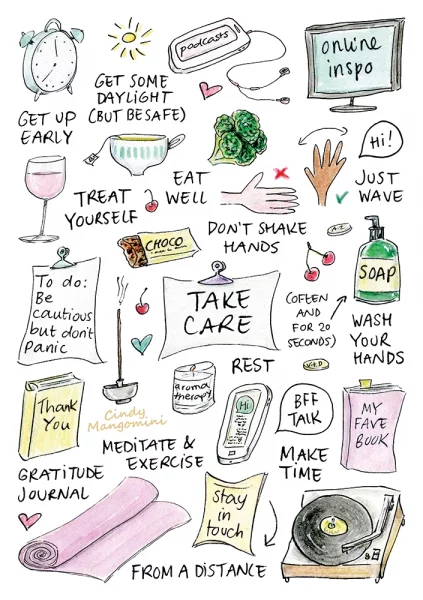 podcasts
online
inspo
GET SOME
DAYLIGHT
(BUT BE SAFE)
GET UP
EARLY
Hi!
JUST
WAVE
EAT
WELL
TREAT
YOURSELF
DON'T SHAKE
HANDS
A-Z
CHOCO
SOAP
To do:
Be
cautious
but don't
Panic
TAKE
CARE
(OFTEN
AND
FOR 20
SECONDS)
WASH
YOUR
HANDS
REST
Vit D
aroma
therapy
Thank
You
Cindy
Mangomini
Hi
BFF
TALK
MY
FAVE
BOOK
MEDITATE &
EXERCISE
MAKE
TIME
GRATITUDE
JOURNAL
stay
in
touch
FROM A DISTANCE